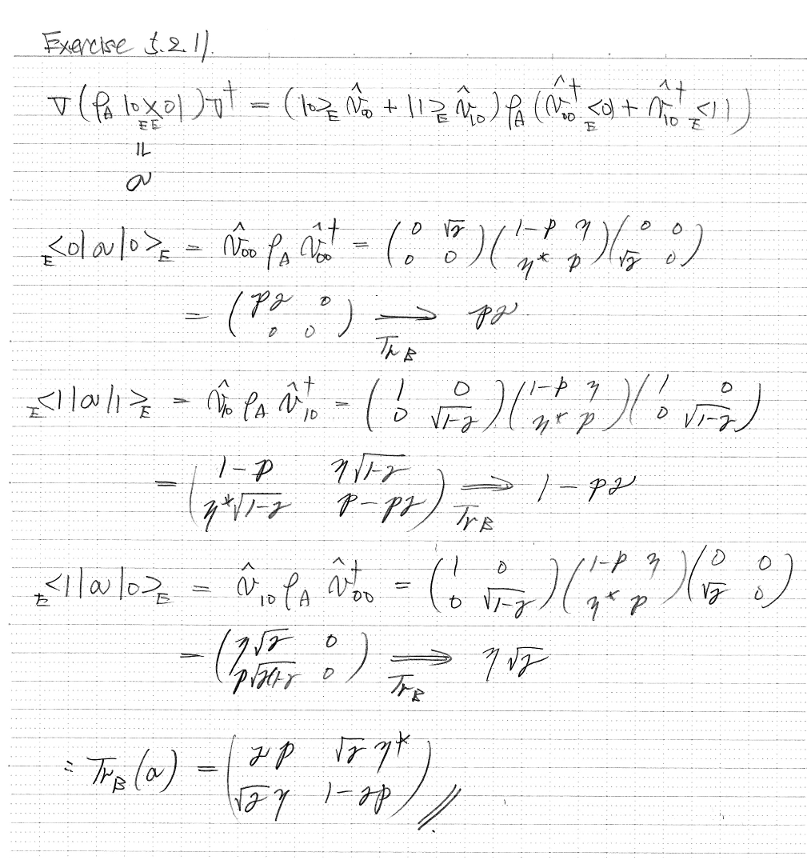 Exercise 5.2.11.
V(ρ_A |0><0|_EE)V† = (|0>_E V̂_00 + |1>_E V̂_10) ρ_A (V̂†_00 _E<0| + V̂†_10 _E<1|)
=
a
_E<0|a|0>_E = V̂_00 ρ_A V̂†_00 = (0 √γ; 0 0)(1-p η; η* p)(0 0; √γ 0)
= (pγ 0; 0 0) ⟹_{Tr_B} pγ
_E<1|a|1>_E = V̂_10 ρ_A V̂†_10 = (1 0; 0 √1-γ)(1-p η; η* p)(1 0; 0 √1-γ)
= (1-p η√1-γ; η*√1-γ p-pγ) ⟹_{Tr_B} 1-pγ
_E<1|a|0>_E = V̂_10 ρ_A V̂†_00 = (1 0; 0 √1-γ)(1-p η; η* p)(0 0; √γ 0)
= (η√γ 0; p√γ(1-γ 0) ⟹_{Tr_B} η√γ
: Tr_B(a) = (γp √γ η*; √γ η 1-γp) //